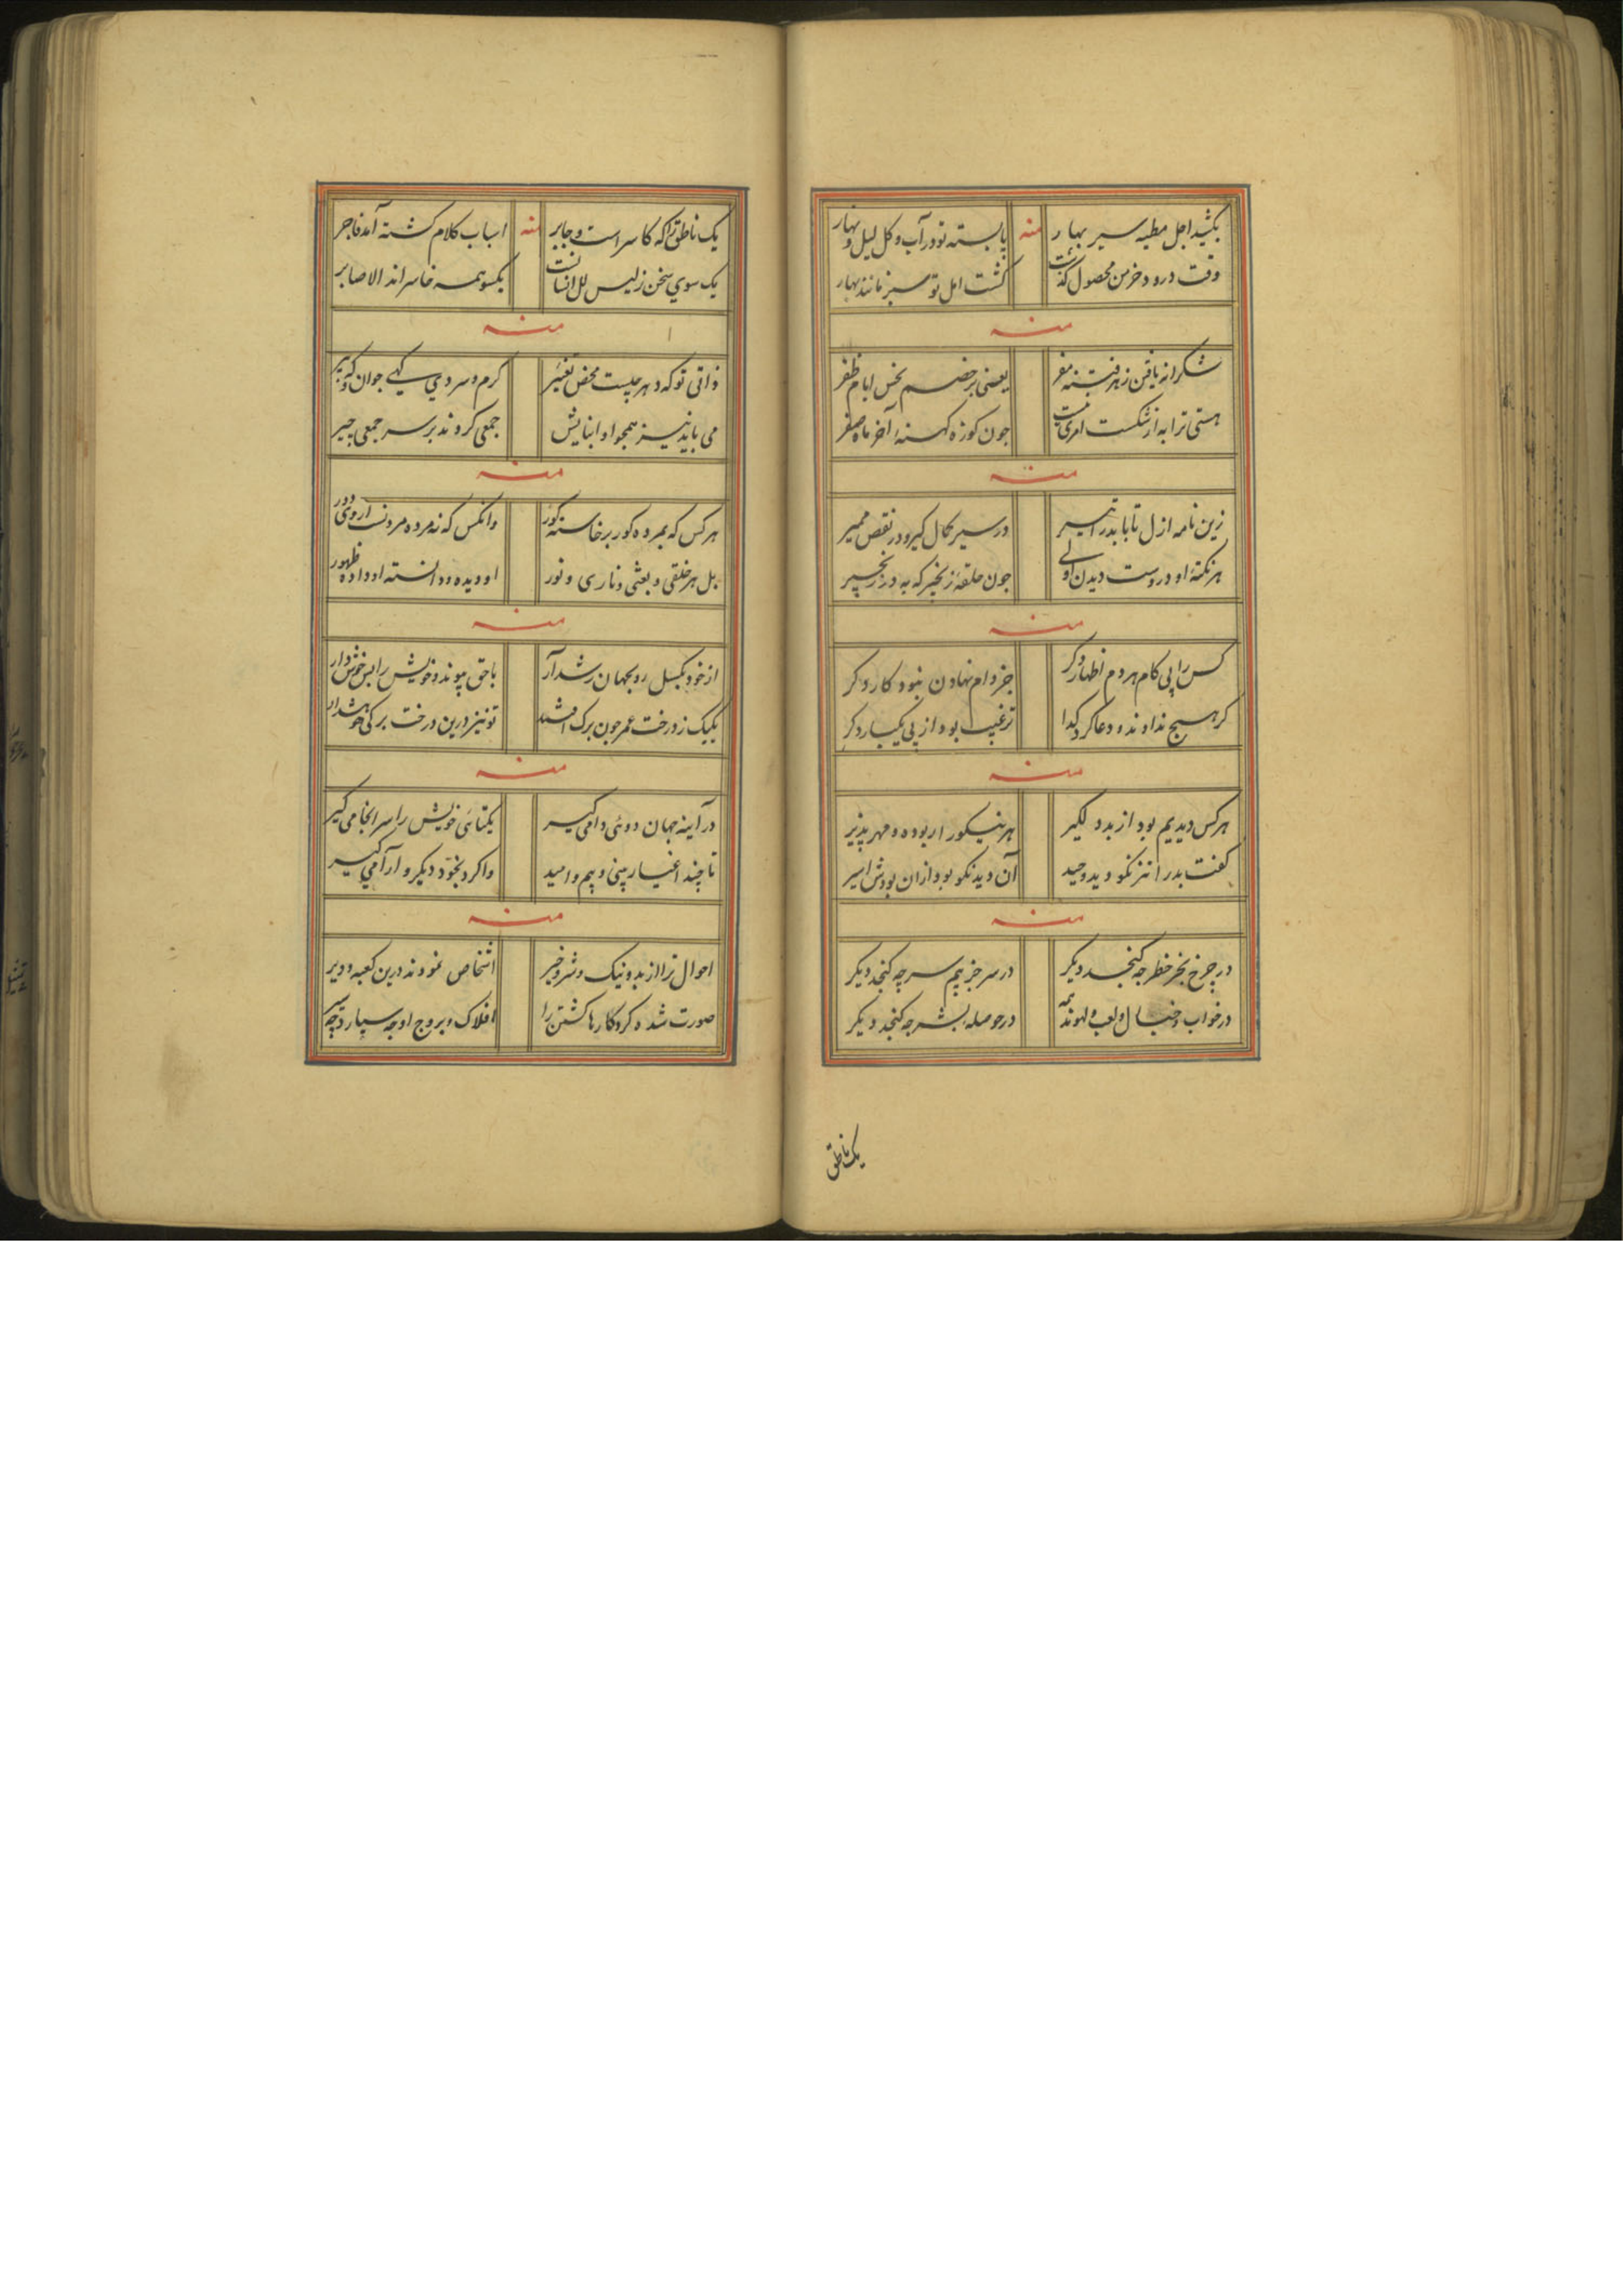 بکشید اجل مطیه سیر بهار منه پابسته تو در آب و کل لیل و نهار
وقت درو و خرمن محصول گذشت کشت امل تو سبز مانند بهار
منه
شکرانه یافتن زهر فتنه مفر یعنی بر خصم نحس ایام ظفر
هستی ترا به از شکست امری نیست چون کوزه کهنهٔ آخر ماه صفر
منه
زین نامه ازل تا بابد در تیسیر در سیر کمال گیرو در نقص ممیر
هر نکتهٔ او دروست دیدن اولی چون حلقهٔ زنجیر که به در زنجیر
منه
کس را پی کام هردم اظهار دکر جز دام نهادن نبود کار دکر
کر هیچ نداوند و دعا کرد کدا ترغیب بود از پی یکبار دکر
منه
هرکس دیدیم بود از بد دلکیر هر نیکو را ربوده و مهر پذیر
گفت بد را نیز نکو دید وحید آن دید نکو بود ازان بودش اسیر
منه
در چرخ بجز خطر چه کنجد دیکر در سر جز بیم سر چه کنجد دیکر
در خواب و خیال و لعب و لهوند همه در حوصله بشر چه کنجد دیکر
یک ناطق
یک ناطق تراکه کاسر است و جابر منه اسباب کلام کشته آمد فاجر
یک سوی سخن زلیس للانسانت یکسو همه خاسر اند الا صابر
منه
ذاتی تو که دهر چیست محض تغییر کرم و سردی کهی جوان و که پیر
می باید نیز همچو او ابنایش جمعی کردند بر سر جمعی چیر
منه
هر کس که بمرده کور برخاسته کور وانکس که نه مرده مردنست از وی دور
بل هر خلقی و بعثی و ناری و نور او دیده و دانسته او داده ظهور
منه
از خود بکسل رو بجهان رشد آر با حق پیوند و خویش را بس خوش دار
یکیک ز درخت عمر چون برک افشند تو نیز درین درخت برکی هشدار
منه
در آینه جهان دوئی وامی کیر یکتائی خویش را سرانجامی کیر
تا چند اغیار بینی و بیم و امید واکرد بخود دیکر و آرامی کیر
منه
احوال ترا از بد و نیک و شر و خیر اشخاص نمودند درین کعبه و دیر
صورت شده کردکارها کشتن را افلاک و بروج اوچه سیار و چه سیر